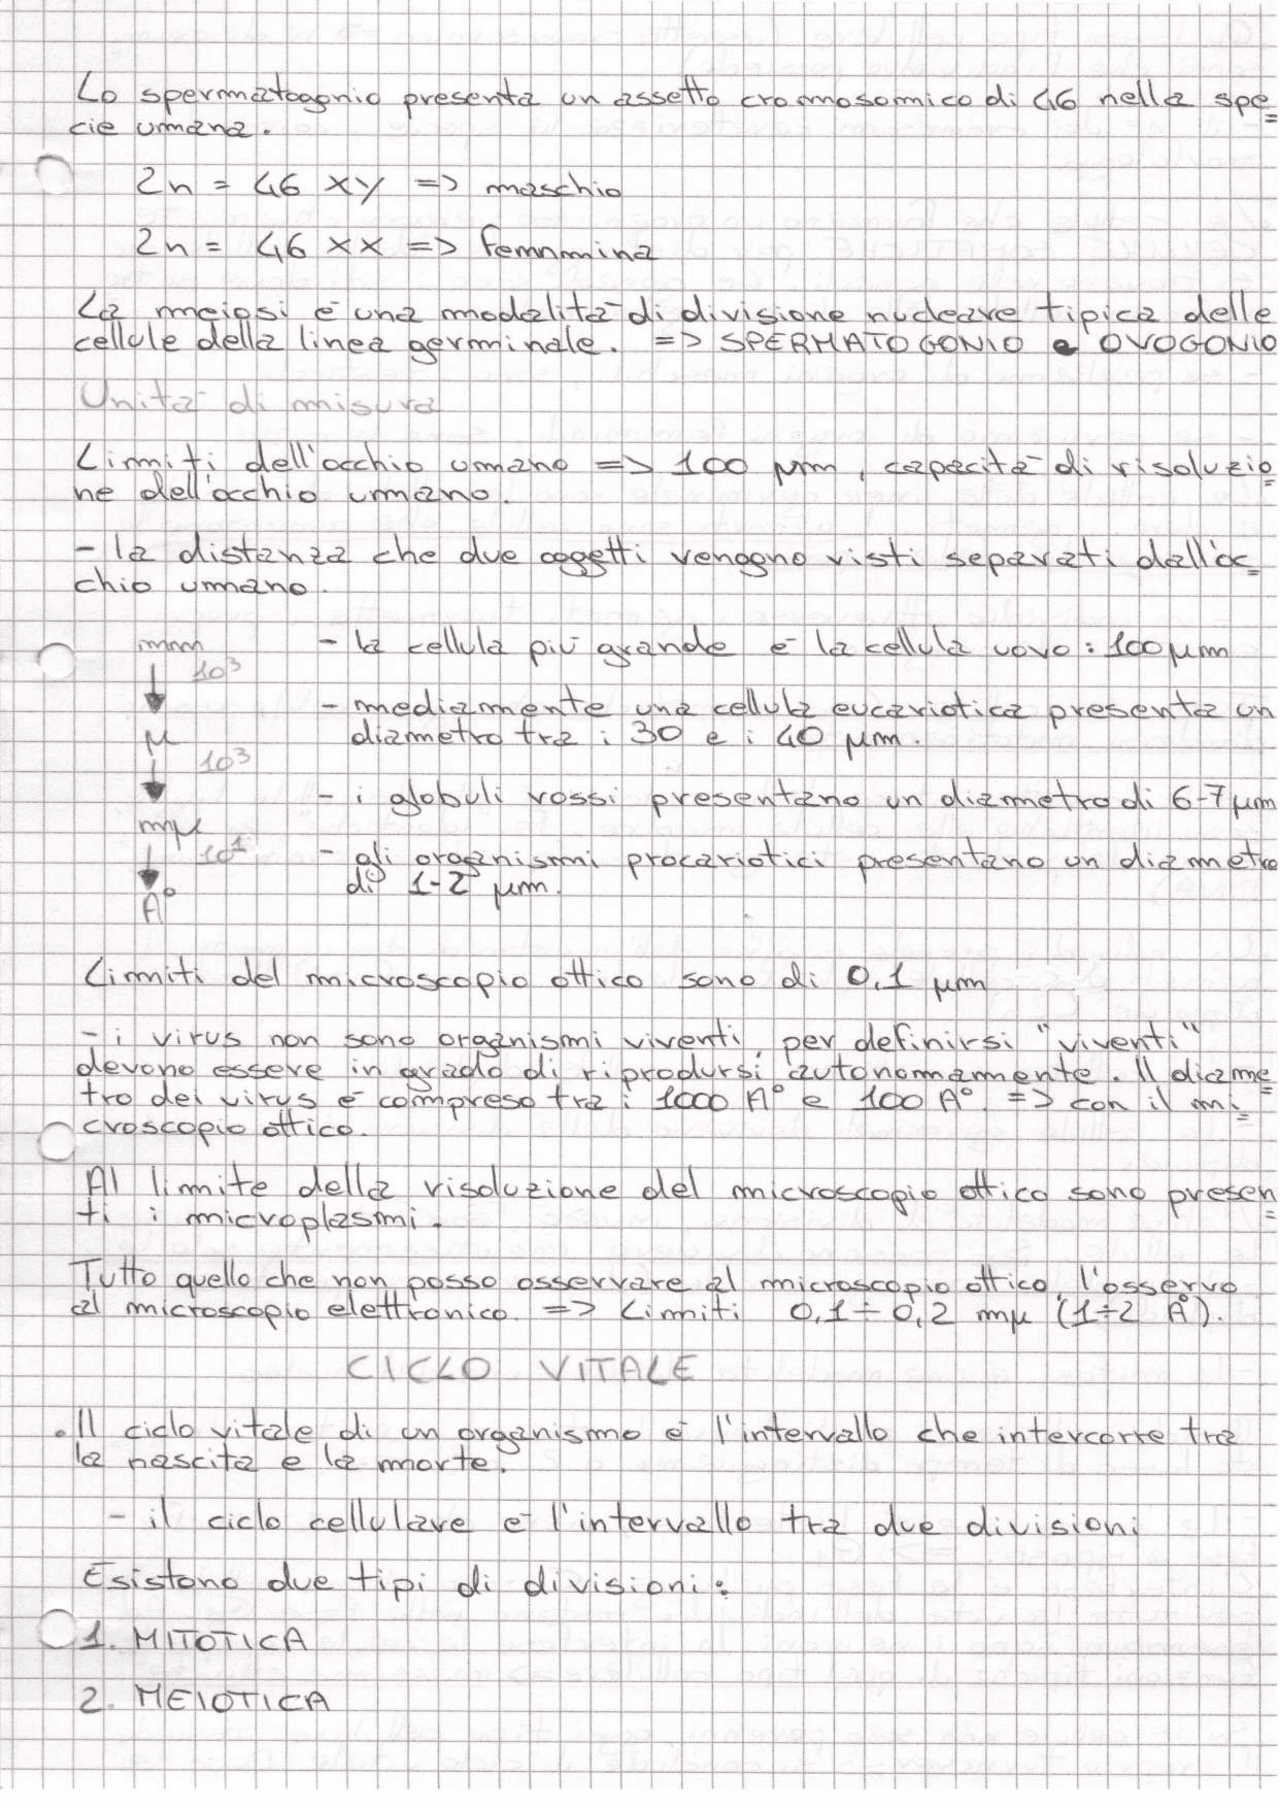 Lo spermatogonio presenta un assetto cromosomico di 46 nella spe=
cie umana.
2n = 46 XY => maschio
2n = 46 XX => femmina
La meiosi è una modalità di divisione nucleare tipica delle
cellule della linea germinale. => SPERMATOGONIO e OVOGONIO
Unità di misura
Limiti dell'occhio umano => 100 μm, capacità di risoluzio=
ne dell'occhio umano.
- la distanza che due oggetti vengono visti separati dall'oc=
chio umano.
mm
10³
μ
10³
mμ
10¹
A°
- la cellula più grande è la cellula uovo: 100 μm
- mediamente una cellula eucariotica presenta un
diametro tra i 30 e i 40 μm.
- i globuli rossi presentano un diametro di 6-7 μm
- gli organismi procariotici presentano un diametro
di 1-2 μm.
Limiti del microscopio ottico sono di 0,1 μm
- i virus non sono organismi viventi, per definirsi "viventi"
devono essere in grado di riprodursi autonomamente. Il diame=
tro dei virus è compreso tra i 1000 A° e 100 A° => con il mi=
croscopio ottico.
Al limite della risoluzione del microscopio ottico sono presen=
ti i microplasmi.
Tutto quello che non posso osservare al microscopio ottico, l'osservo
al microscopio elettronico. => Limiti 0,1÷0,2 mμ (1÷2 A°).
CICLO VITALE
• Il ciclo vitale di un organismo è l'intervallo che intercorre tra
la nascita e la morte.
- il ciclo cellulare è l'intervallo tra due divisioni
Esistono due tipi di divisioni:
1. MITOTICA
2. MEIOTICA